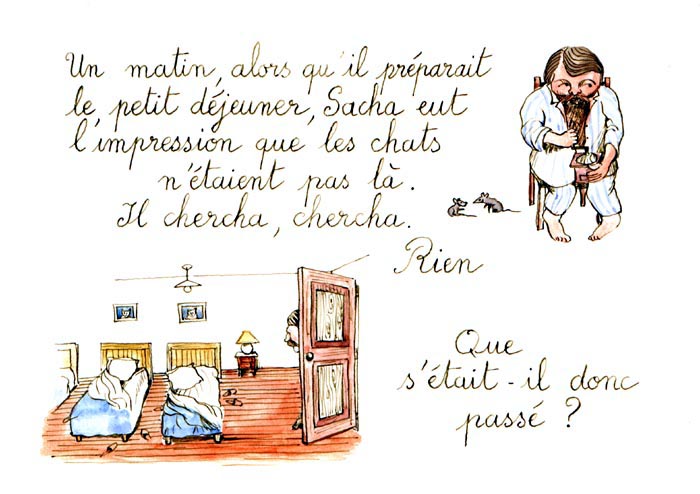 Un matin, alors qu'il préparait
le petit déjeuner, Sacha eut
l'impression que les chats
n'étaient pas là.
Il chercha, chercha.
Rien
Que
s'était-il donc
passé ?